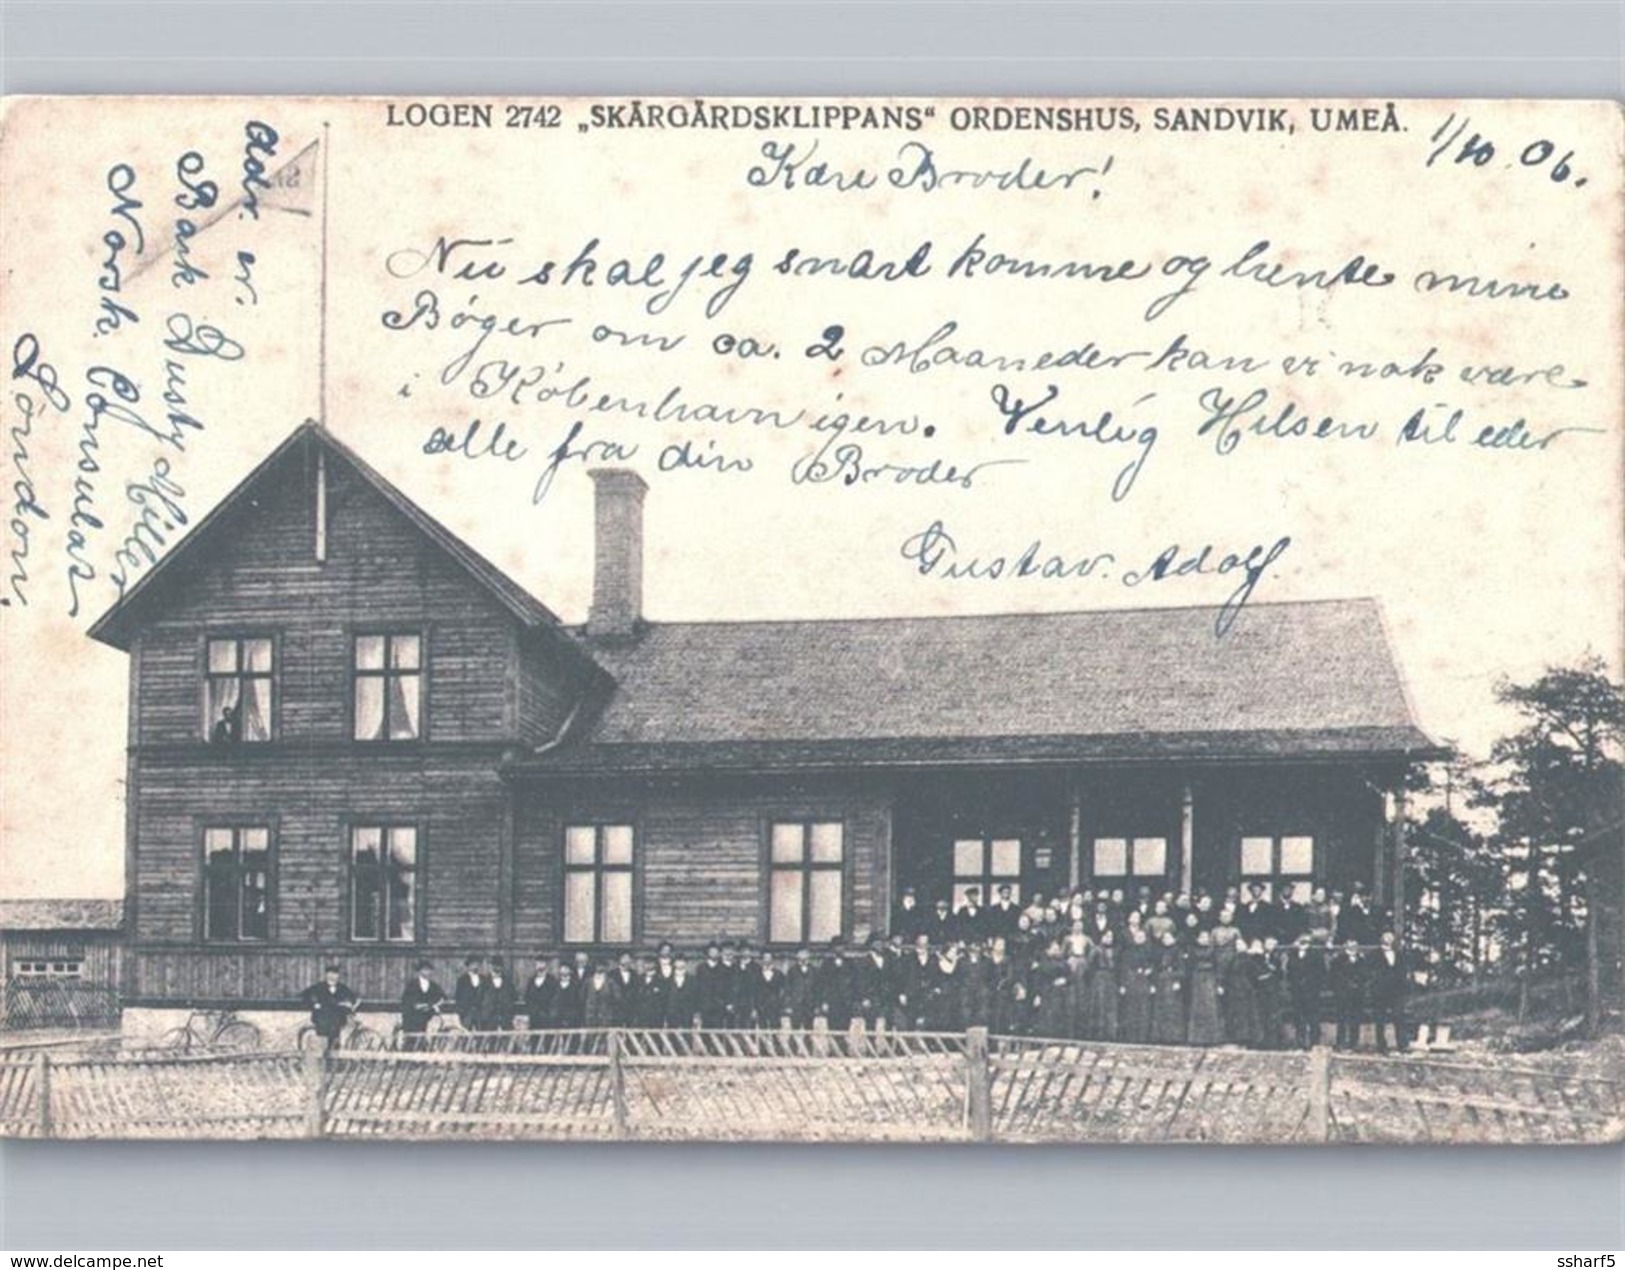 LOGEN 2742 „SKÄRGÅRDSKLIPPANS“ ORDENSHUS, SANDVIK, UMEÅ.
1/10 06.
Kære Broder!
Nu skal jeg snart komme og hente mine
Bøger om ca. 2 Maaneder kan vi nok være
i København igen. Venlig Hilsen til eder
alle fra din Broder
Gustav. Adolf.
Adr. er.
Bark Gusty
Norsk. Consulat
London.
delcampe.net
ssharf5